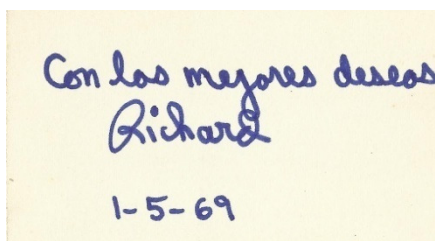 Con los mejores deseos
Richard
1-5-69